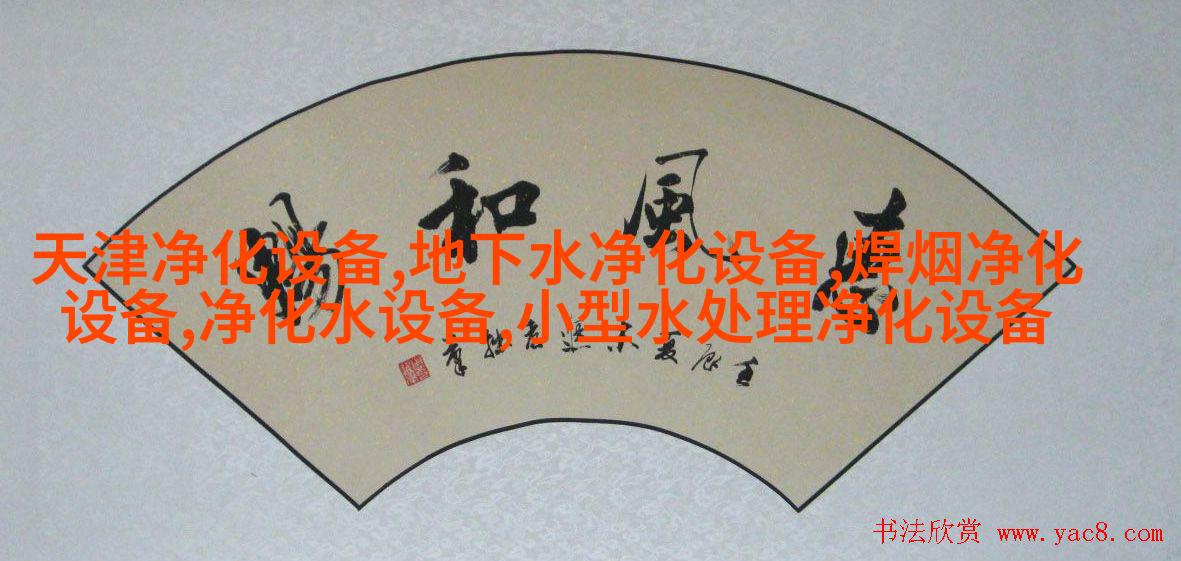 惠風和暢
天津净化设备,地下水净化设备,焊烟净化
设备,净化水设备,小型水处理净化设备
壬辰夏
书法欣赏 www.yac8.com